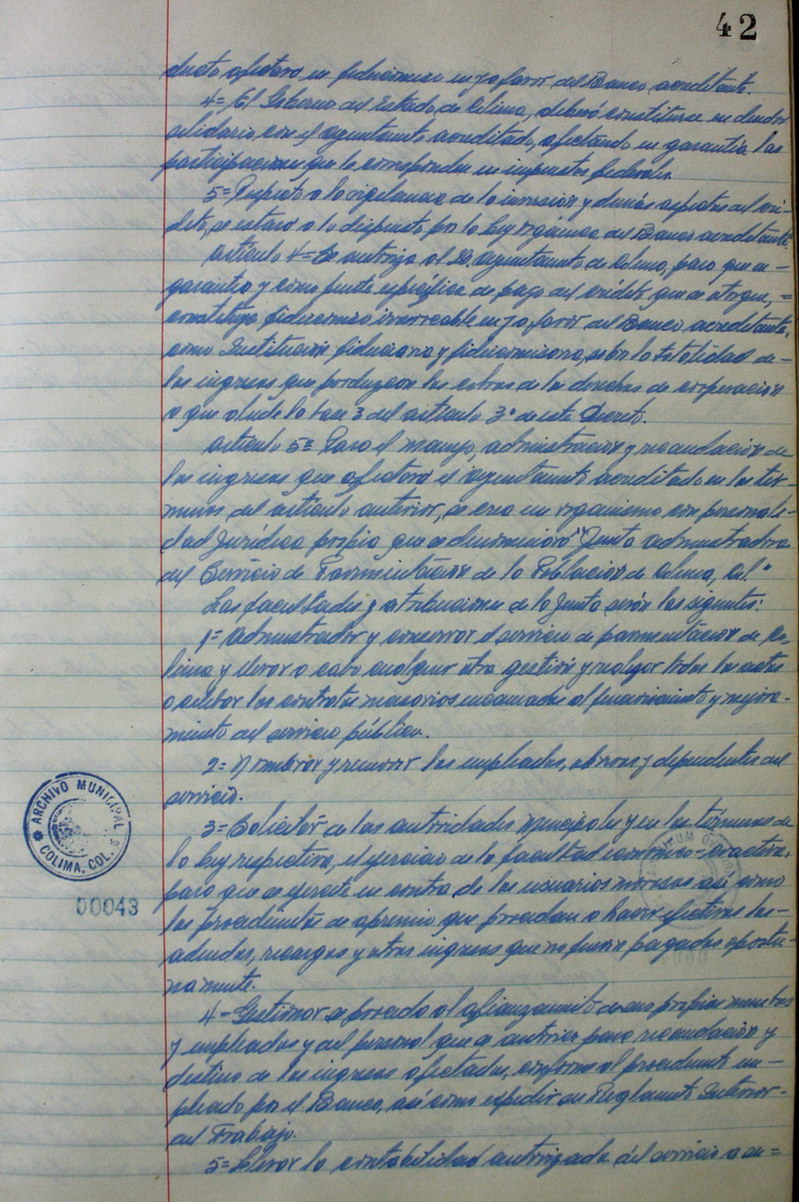 42
ducto afectara en fideicomiso en y a favor del Banco acreditante.
4= El Gobierno del Estado de Colima, deberá constituirse en deudor
solidario con el ayuntamiento acreditado, afectando en garantía las
participaciones que le correspondan en impuestos federales.
5= Respecto a la vigilancia de la inversión y demás aspectos del cré-
dito, se estará a lo dispuesto por la Ley orgánica del Banco acreditante.
artículo 4= Se autoriza al H. ayuntamiento de Colima, para que en-
garantía y como fuente específica de pago del crédito que se otorgue, =
constituya fideicomiso irrevocable en y a favor del Banco acreditante,
como Institución fiduciaria y fideicomisaria, sobre la totalidad de-
los ingresos que produzcan los cobros de los derechos de cooperación
a que alude la base 3 del artículo 3° de este Decreto.
artículo 5= Para el manejo, administración y recaudación de
los ingresos que afectará el ayuntamiento acreditado en los tér-
minos del artículo anterior, se crea un organismo con personali-
dad Jurídica propia que se denominará "Junta administradora
del Servicio de Pavimentación de la Población de Colima, Col."
Las facultades y atribuciones de la Junta serán las siguientes:
1= administrar y conservar el servicio de pavimentación de Co-
lima y llevar a cabo cualquier otra gestión y realizar todos los actos
o celebrar los contratos necesarios encaminados al funcionamiento y mejora-
miento del servicio público.
2= Nombrar y remover los empleados, obreros y dependientes del
servicio.
3= Solicitar de las autoridades municipales y en los términos de
la Ley respectiva, el ejercicio de la facultad económico-coactiva,
para que se ejercite en contra de los usuarios morosos así como
los procedimientos de apremio que procedan a hacer efectivos los-
adeudos, recargos y otros ingresos que no fueren pagados oportu-
namente.
4= Gestionar se proceda al afianzamiento de sus propios miembros
y empleados y del personal que se autorice para recaudación y
destino de los ingresos afectados, conforme al procedimiento em-
pleado por el Banco, así como expedir su Reglamento Interior-
del Trabajo.
5= Llevar la contabilidad autorizada del servicio a de=
ARCHIVO MUNICIPAL
COLIMA, COL.
00043